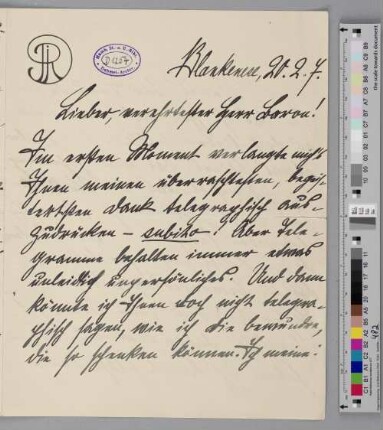 Blankenese, 20.2.7.
Lieber, verehrtester Herr Baron!
Im ersten Moment verlangte mich's
Ihnen meinen überraschtesten, begei-
stertsten Dank telegraphisch aus-
zudrücken – subito! Aber Tele-
gramme behalten immer etwas
unleidlich unpersönliches. Und dann
könnte ich Ihnen doch nicht telegra-
phisch sagen, wie ich die bewundre,
die so schenken können. Ich meine: